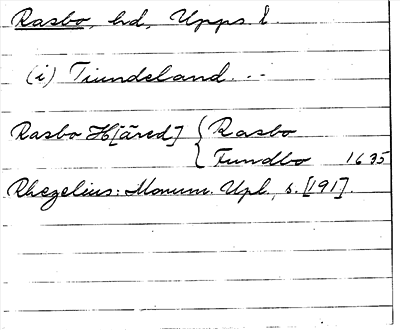 Rasbo, hd, Upps. l.
(i) Tiundeland...
Rasbo H[äred] { Rasbo
Fundbo 1635
Rhezelius: Monum. Upl., s. [191].